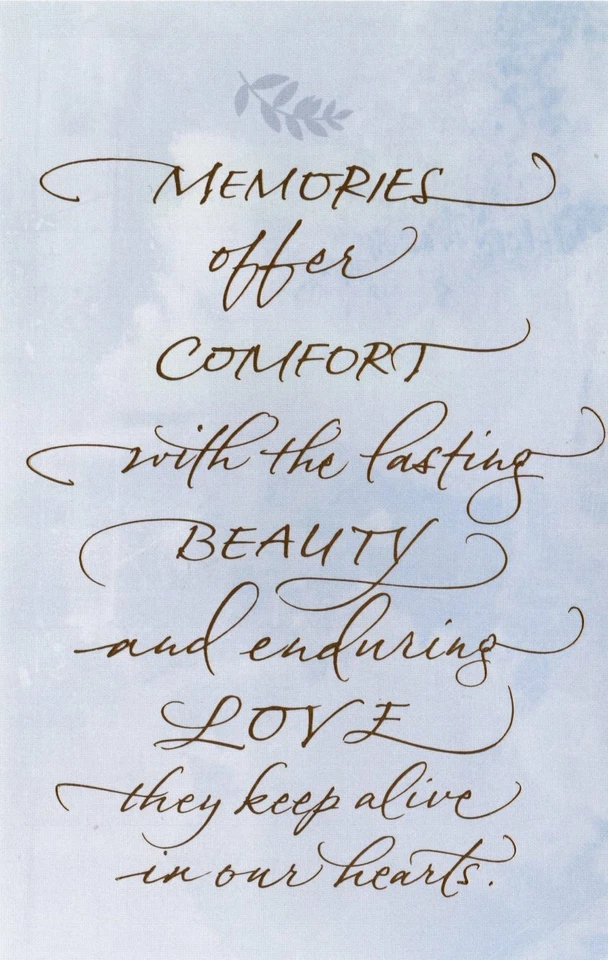 MEMORIES
offer
COMFORT
with the lasting
BEAUTY
and enduring
LOVE
they keep alive
in our hearts.